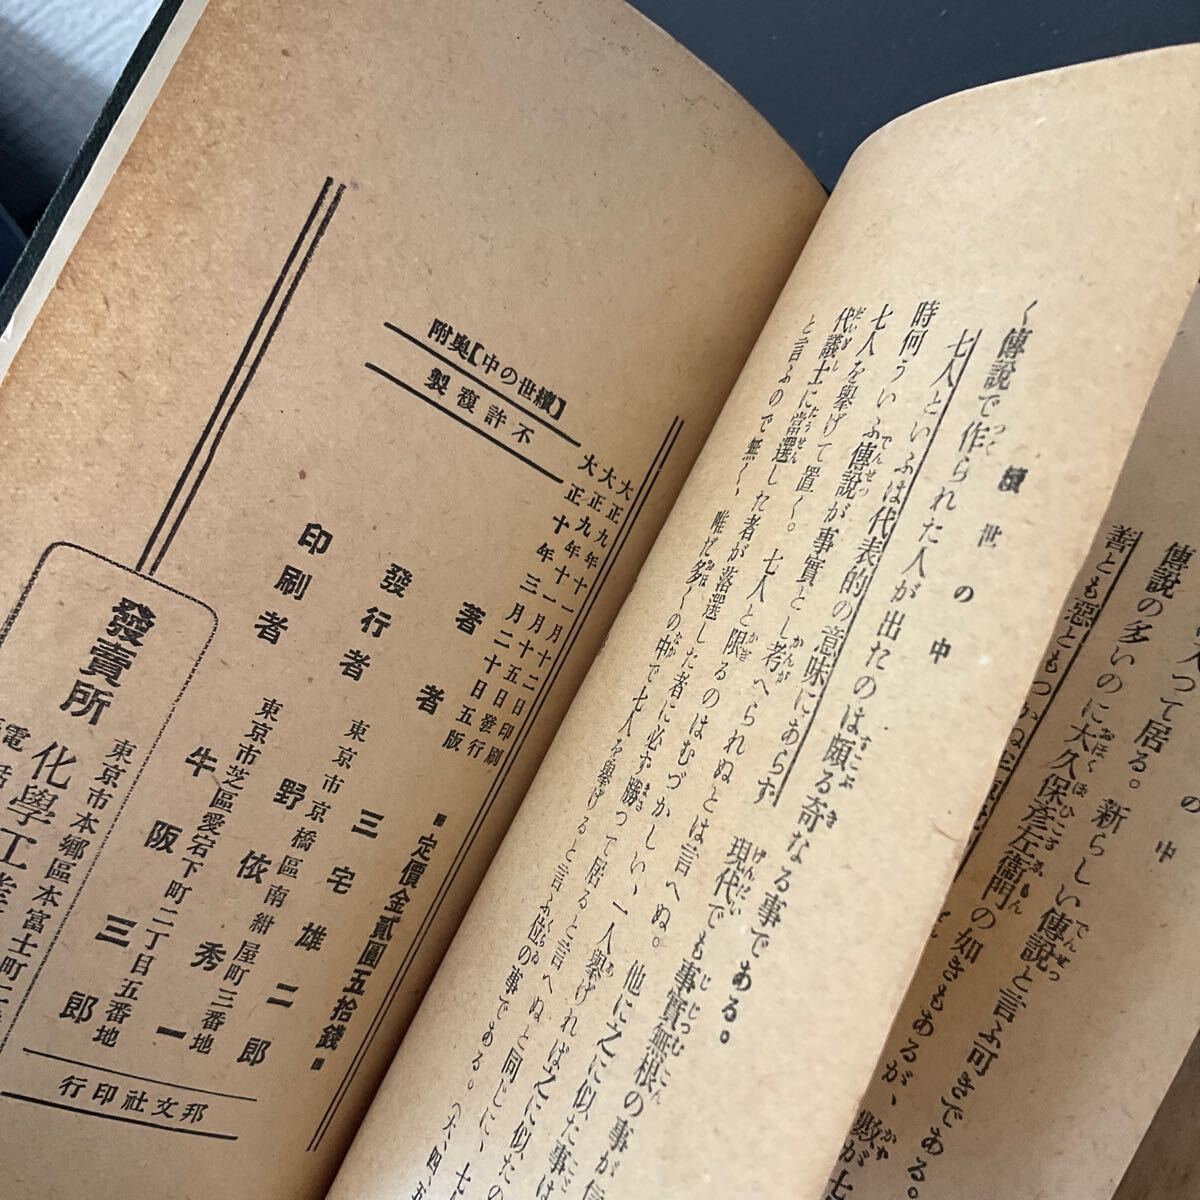 の中
傳說の多いのに大久保彦左衞門の如きもあるが、數が七
つて居る。新らしい傳說と言ふ可きである。
善とも惡ともつかぬ
續世の中
く傳說で作られた人が出たのは頗る奇なる事である。
七人といふは代表的の意味にあらず
時何ういふ傳說が事實とし考へられぬとは言へぬ。
七人を擧げて置く。七人と限るのはむづかしい、一人擧げれば之に似た事は
代議士に當選した者が落選した者に必ず勝つて居ると言へぬと同じに、七
と言ふので無く、唯だ多くの中で七人を擧げると言ふ位の事である。(大、四、五
現代でも事實無根の事が信
他に之に似たの
【續世の中】奧附
不許複製
大正九年十一月十二日印刷
大正九年十一月十五日發行
大正十年三月二十日五版
■定價金貳圓五拾錢■
著者 三宅雄二郎
發行者 東京市京橋區南紺屋町三番地 野依秀一
印刷者 東京市芝區愛宕下町二丁目五番地 牛阪三郎
邦文社印行
發賣所 東京市本鄉區本富士町二
化學工業
電話